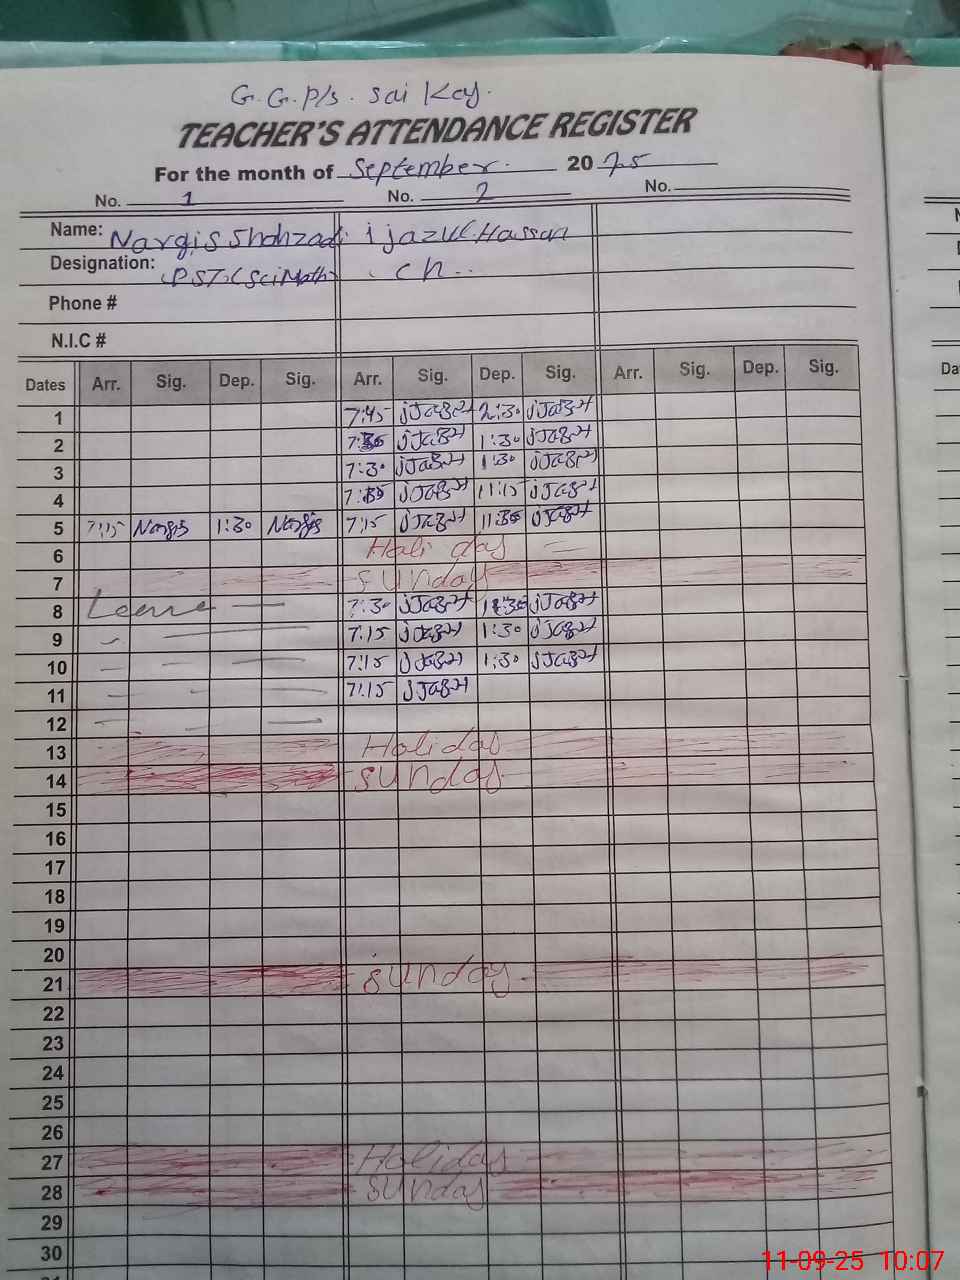 G.G.P/s. Sai Kay.
TEACHER'S ATTENDANCE REGISTER
For the month of September. 20 25
No. 1 No. 2 No.
Name: Nargis Shahzadi ijazul Hassan
Designation: PST (Sci Math) Ch..
Phone #
N.I.C #
Dates Arr. Sig. Dep. Sig. Arr. Sig. Dep. Sig. Arr. Sig. Dep. Sig.
1 7:45 2:30
2 1:30
3 7:30 1:30
4 11:15
5 7:15 Nargis 1:30 Nargis 7:15 11:30
6 Holi day
7 Sunday
8 Leave 7:30
9 7:15 1:30
10 7:15 1:30
11 7:15
12
13 Holiday
14 Sunday
15
16
17
18
19
20
21 Sunday
22
23
24
25
26
27 Holiday
28 Sunday
29
30
11-09-25 10:07